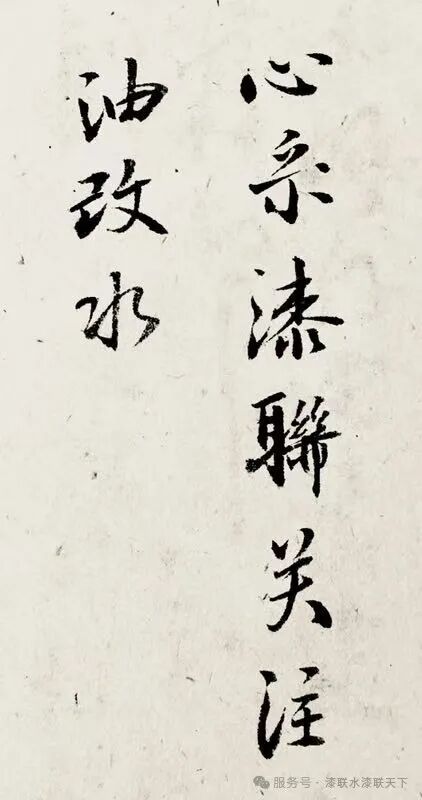 心采漆聯关注
油改水
服务号 · 漆联水漆联天下